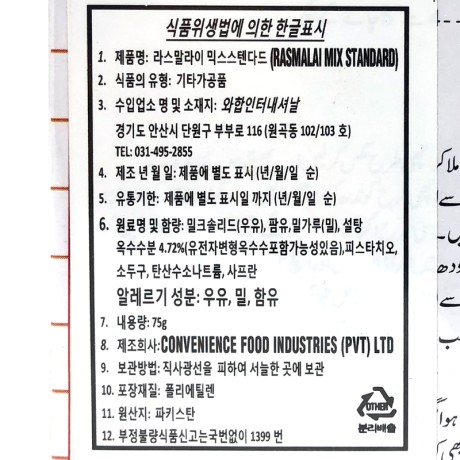 식품위생법에 의한 한글표시
1. 제품명: 라스말라이 믹스스텐다드(RASMALAI MIX STANDARD)
2. 식품의 유형: 기타가공품
3. 수입업소 명 및 소재지: 와합인터내셔날
경기도 안산시 단원구 부부로 116 (원곡동 102/103 호)
TEL: 031-495-2855
4. 제조 년 월 일: 제품에 별도 표시 (년/월/일 순)
5. 유통기한: 제품에 별도 표시일 까지 (년/월/일 순)
6. 원료명 및 함량: 밀크솔리드(우유), 팜유,밀가루(밀), 설탕
옥수수분 4.72%(유전자변형옥수수포함가능성있음),피스타치오,
소두구, 탄산수소나트륨, 사프란
알레르기 성분: 우유, 밀, 함유
7. 내용량: 75g
8. 제조회사:CONVENIENCE FOOD INDUSTRIES (PVT) LTD
9. 보관방법: 직사광선을 피하여 서늘한 곳에 보관
10. 포장재질: 폴리에틸렌
11. 원산지: 파키스탄
12. 부정불량식품신고는국번없이 1399 번
OTHER
분리배출